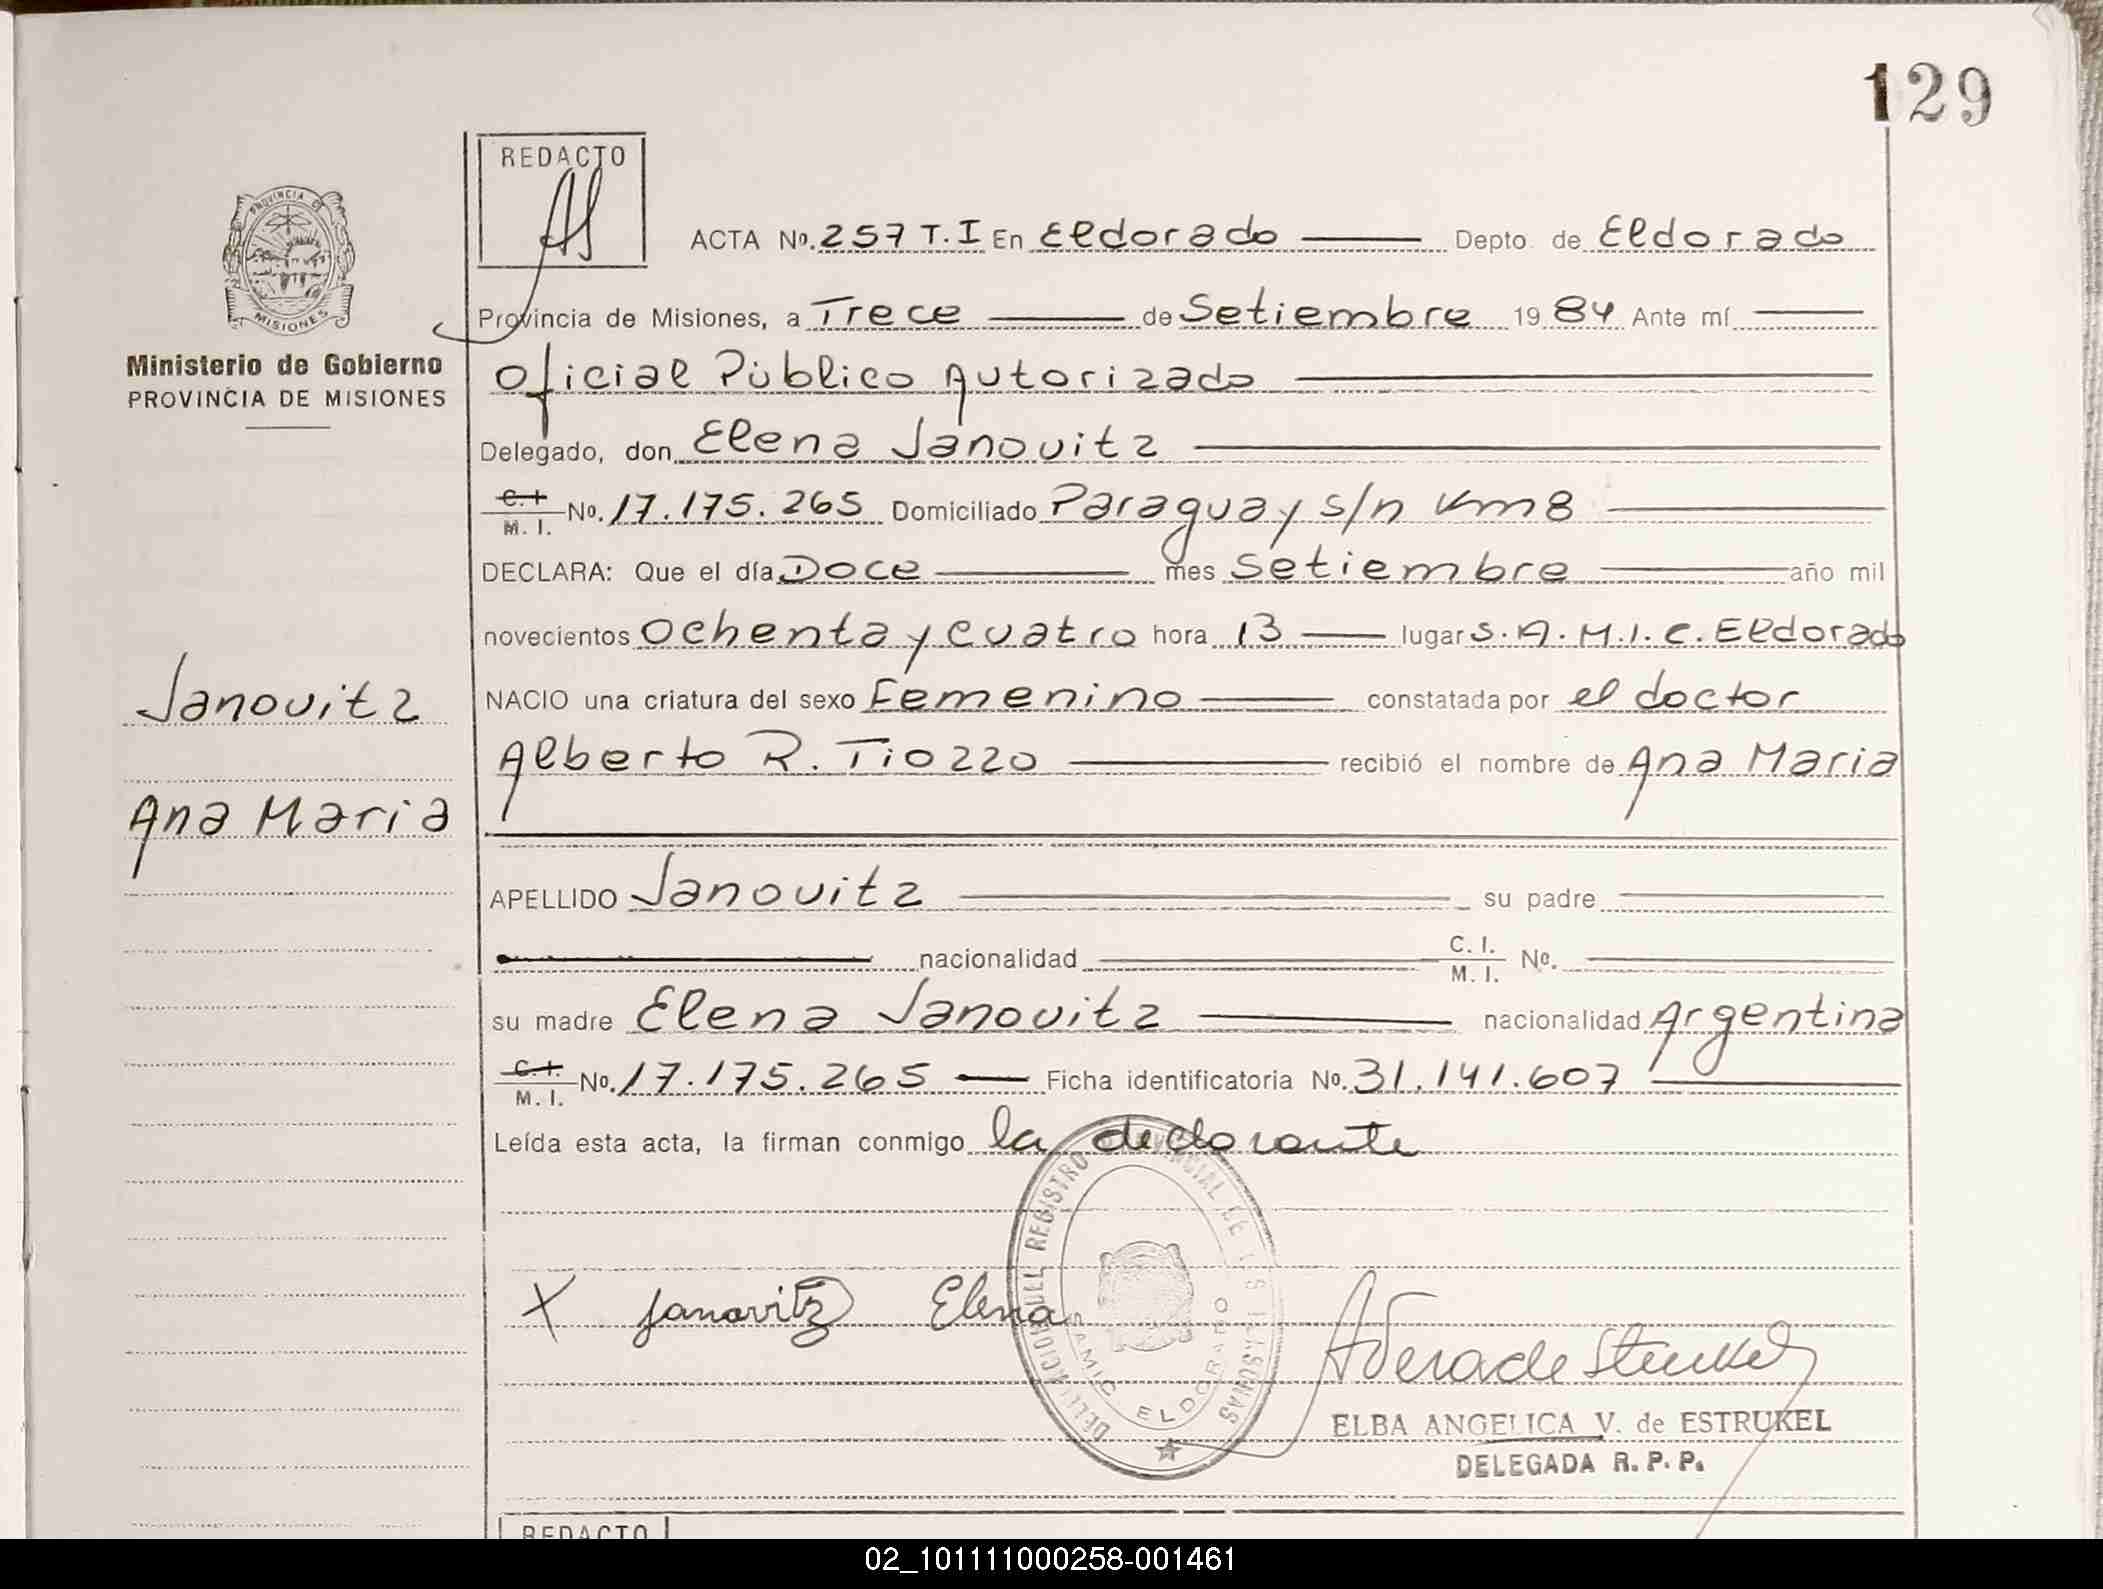 129
REDACTO
PROVINCIA DE
MISIONES
Ministerio de Gobierno
PROVINCIA DE MISIONES
ACTA Nº. 257 T.I En Eldorado Depto de Eldorado
Provincia de Misiones, a Trece de Setiembre 19 84 Ante mí
Oficial Público Autorizado
Delegado, don Elena Janovitz
C. I. M. I. Nº. 17.175.265 Domiciliado Paraguay s/n Km 8
DECLARA: Que el día Doce mes Setiembre año mil
novecientos Ochenta y cuatro hora 13 lugar S.A.M.I.C. Eldorado
NACIO una criatura del sexo Femenino constatada por el doctor
Alberto R. Tiozzo recibió el nombre de Ana Maria
Janovitz
Ana Maria
APELLIDO Janovitz su padre
nacionalidad C. I. M. I. Nº.
su madre Elena Janovitz nacionalidad Argentina
C. I. M. I. Nº. 17.175.265 Ficha identificatoria Nº. 31.141.607
Leída esta acta, la firman conmigo la declarante
X Janovitz Elena
REGISTRO PROVINCIAL DE LAS PERSONAS
SAMIC ELDORADO
A V era de Estrukel
ELBA ANGELICA V. de ESTRUKEL
DELEGADA R. P. P.
REDACTO
02_101111000258-001461